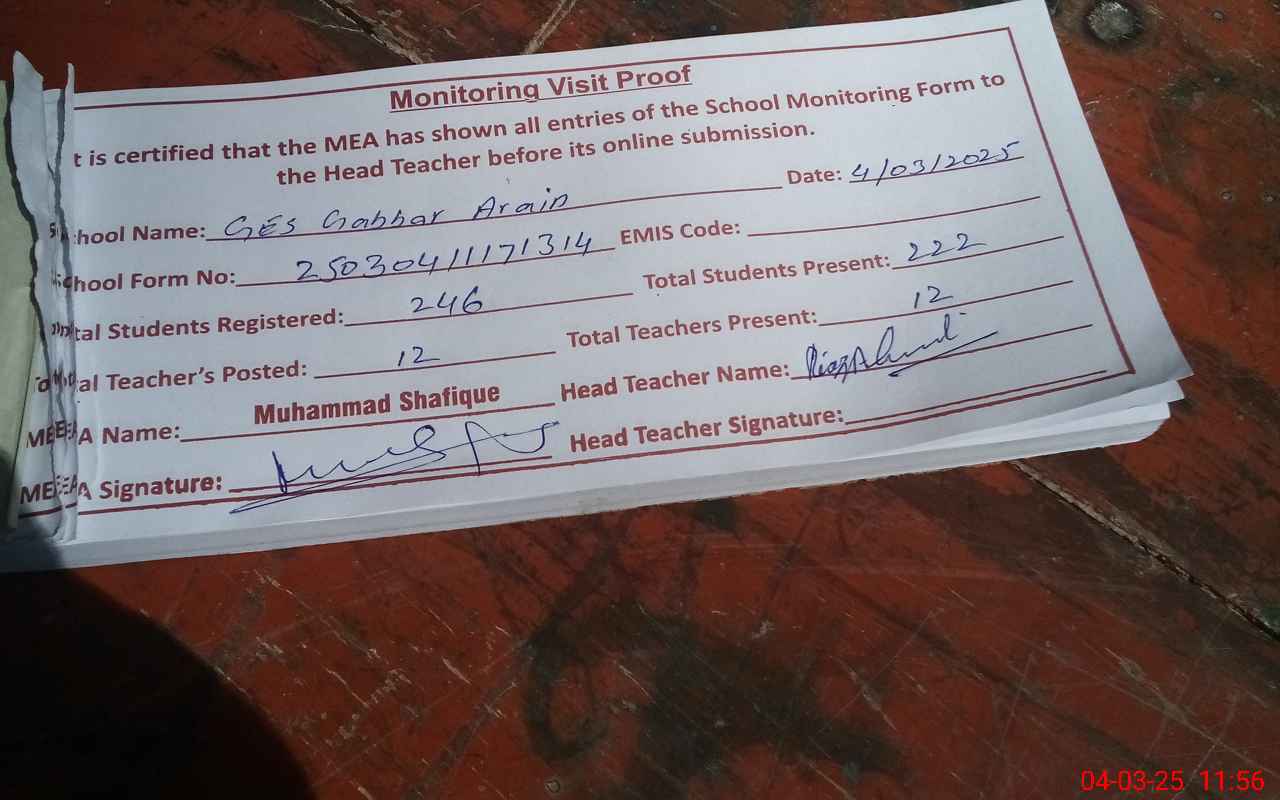 Monitoring Visit Proof
t is certified that the MEA has shown all entries of the School Monitoring Form to
the Head Teacher before its online submission.
chool Name: GES Gabbar Arain Date: 4/03/2025
chool Form No: 25030411171314 EMIS Code:
tal Students Registered: 246 Total Students Present: 222
al Teacher's Posted: 12 Total Teachers Present: 12
MEA Name: Muhammad Shafique Head Teacher Name:
MEA Signature: Head Teacher Signature:
04-03-25 11:56